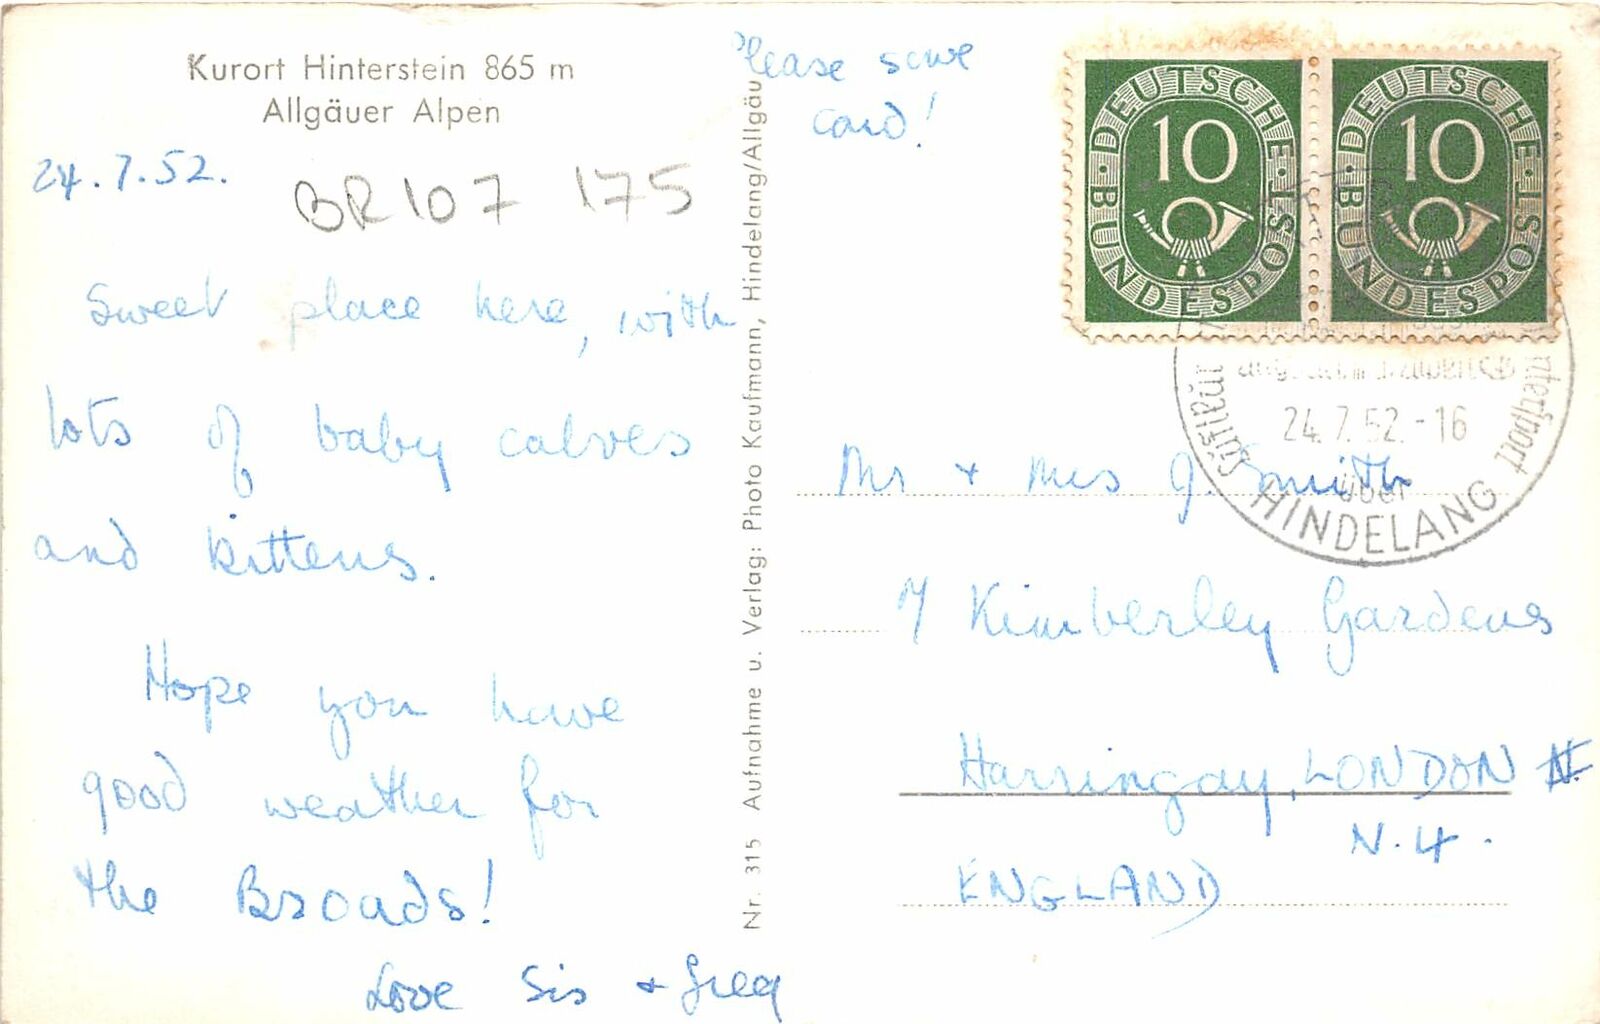 Kurort Hinterstein 865 m
Allgäuer Alpen
24.7.52.
BR107 175
Sweet place here, with
lots of baby calves
and kittens.
Hope you have
good weather for
the Broads!
Love Sis + Greg
Nr. 315 Aufnahme u. Verlag: Photo Kaufmann, Hindelang/Allgäu
Please save
card!
DEUTSCHE BUNDESPOST
10
DEUTSCHE BUNDESPOST
10
24.7.52.-16
über
HINDELANG
Mr + Mrs J. Smith
7 Kimberley Gardens
Harringay, LONDON N.
N.4.
ENGLAND